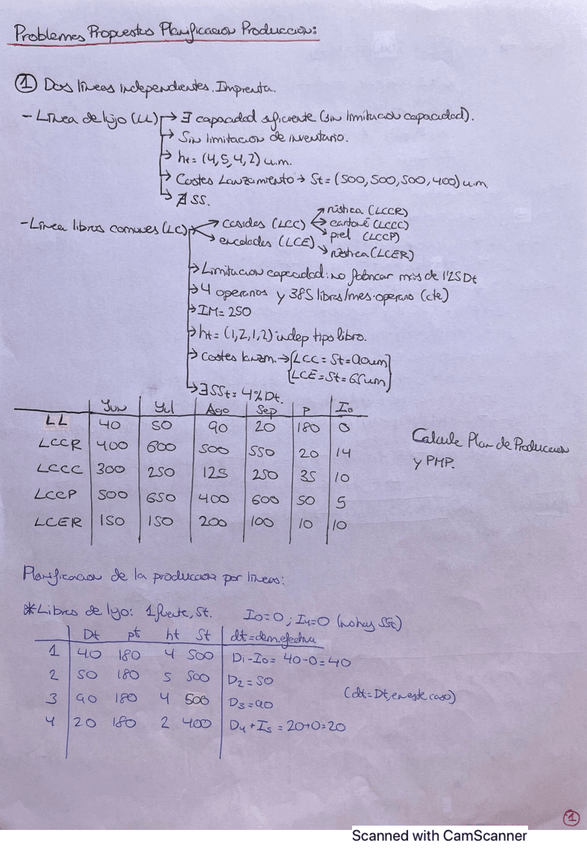 Problemas Propuestos Planificacion Produccion:
① Dos líneas independientes. Imprenta.
- Línea de lujo (LL) → ∃ capacidad suficiente (sin limitacion capacidad).
→ Sin limitacion de inventario.
→ ht = (4, 5, 4, 2) u.m.
→ Costes Lanzamiento → St = (500, 500, 500, 400) u.m
→ ∄ SS.
- Línea libros comunes (LC) → cosidos (LCC) → rústica (LCCR)
→ cartoné (LCCC)
→ piel (LCCP)
→ encolados (LCE) → rústica (LCER)
→ Limitacion capacidad: no fabricar más de 1'25 Dt
→ 4 operarios y 385 libros/mes·operario (cte)
→ IM = 250
→ ht = (1, 2, 1, 2) indep tipo libro.
→ Costes lanzam. → [LCC = St = 90um
LCE = St = 65um]
→ ∃ SSt = 4% Dt.
Jun Jul Ago Sep P I₀
LL 40 50 90 20 180 0
LCCR 400 600 500 550 20 14
LCCC 300 250 125 250 35 10
LCCP 500 650 400 600 50 5
LCER 150 150 200 100 10 10
Calcule Plan de Produccion
y PMP.
Planificacion de la produccion por líneas:
* Libros de lujo: 1 fuente, St. I₀=0 ; I₄=0 (no hay SSt)
Dt pt ht St dt = dem efectiva
1 40 180 4 500 D₁-I₀ = 40-0 = 40
2 50 180 5 500 D₂ = 50
3 90 180 4 500 D₃ = 90 (dt = Dt, en este caso)
4 20 180 2 400 D₄ + I₅ = 20+0 = 20
1
Scanned with CamScanner